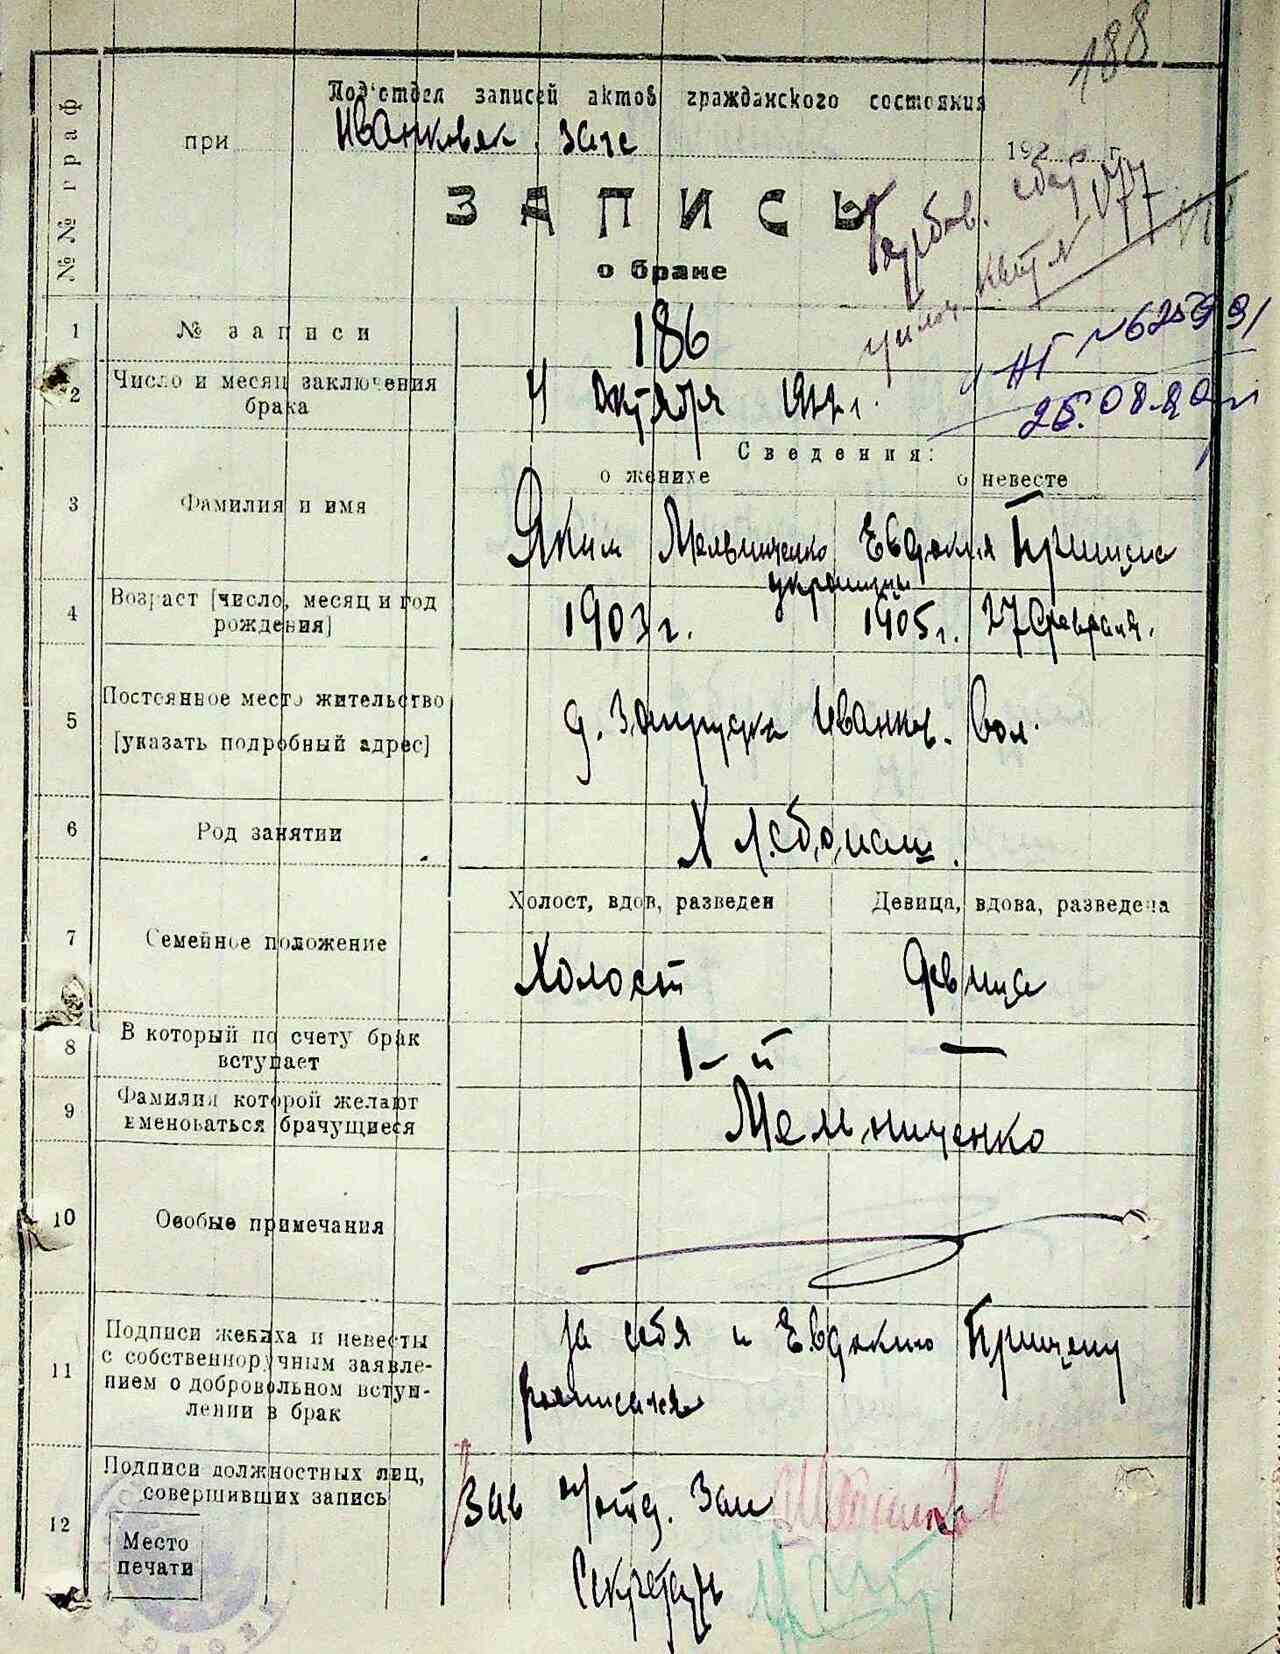 188
Под'отдел записей актов гражданского состояния
при Иванковск. загс 192 г.
ЗАПИСЬ
о браке
№№ граф
1 № записи 186
2 Число и месяц заключения
брака
4 октября 1922 г.
25.08.80
Сведения:
о женихе о невесте
3 Фамилия и имя
Яким Мельниченко Евдокия
украинцы
4 Возраст [число, месяц и год
рождения]
1903 г. 1905 г. 27 февраля.
5 Постоянное место жительство
[указать подробный адрес]
д. Запрудка Иванков. Вол.
6 Род занятии Хлебопаш.
Холост, вдов, разведен Девица, вдова, разведена
7 Семейное положение
Холост девица
8 В который по счету брак
вступает
1-й —
9 Фамилия которой желают
именоваться брачущиеся
Мельниченко
10 Особые примечания
11 Подписи жениха и невесты
с собственноручным заявле-
нием о добровольном вступ-
лении в брак
за себя и Евдокию
росписался
12 Подписи должностных лиц,
совершивших запись
Зав п/отд. Заг
Секретарь
Место
печати